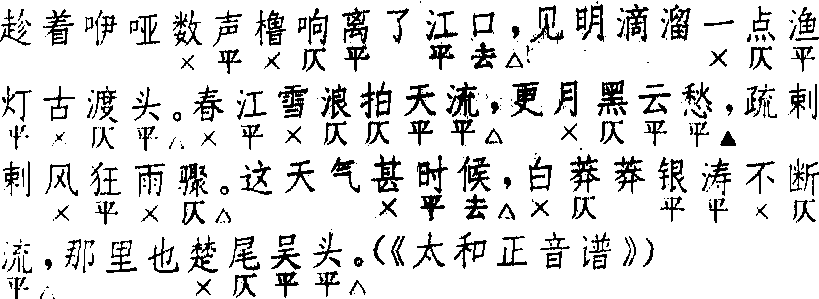 趁着咿哑数声橹响离了江口，见明滴溜一点渔
× 平 × 仄 平 平 去 △ × 仄 平
灯古渡头。春江雪浪拍天流，更月黑云愁，疏剌
平 × 仄 平 △ × 平 × 仄 仄 平 平 △ × 仄 平 平 ▲
剌风狂雨骤。这天气甚时候，白莽莽银涛不断
× 平 × 仄 △ × 平 去 △ × 仄 平 平 × 仄
流，那里也楚尾吴头。（《太和正音谱》）
平 △ × 仄 平 平 △